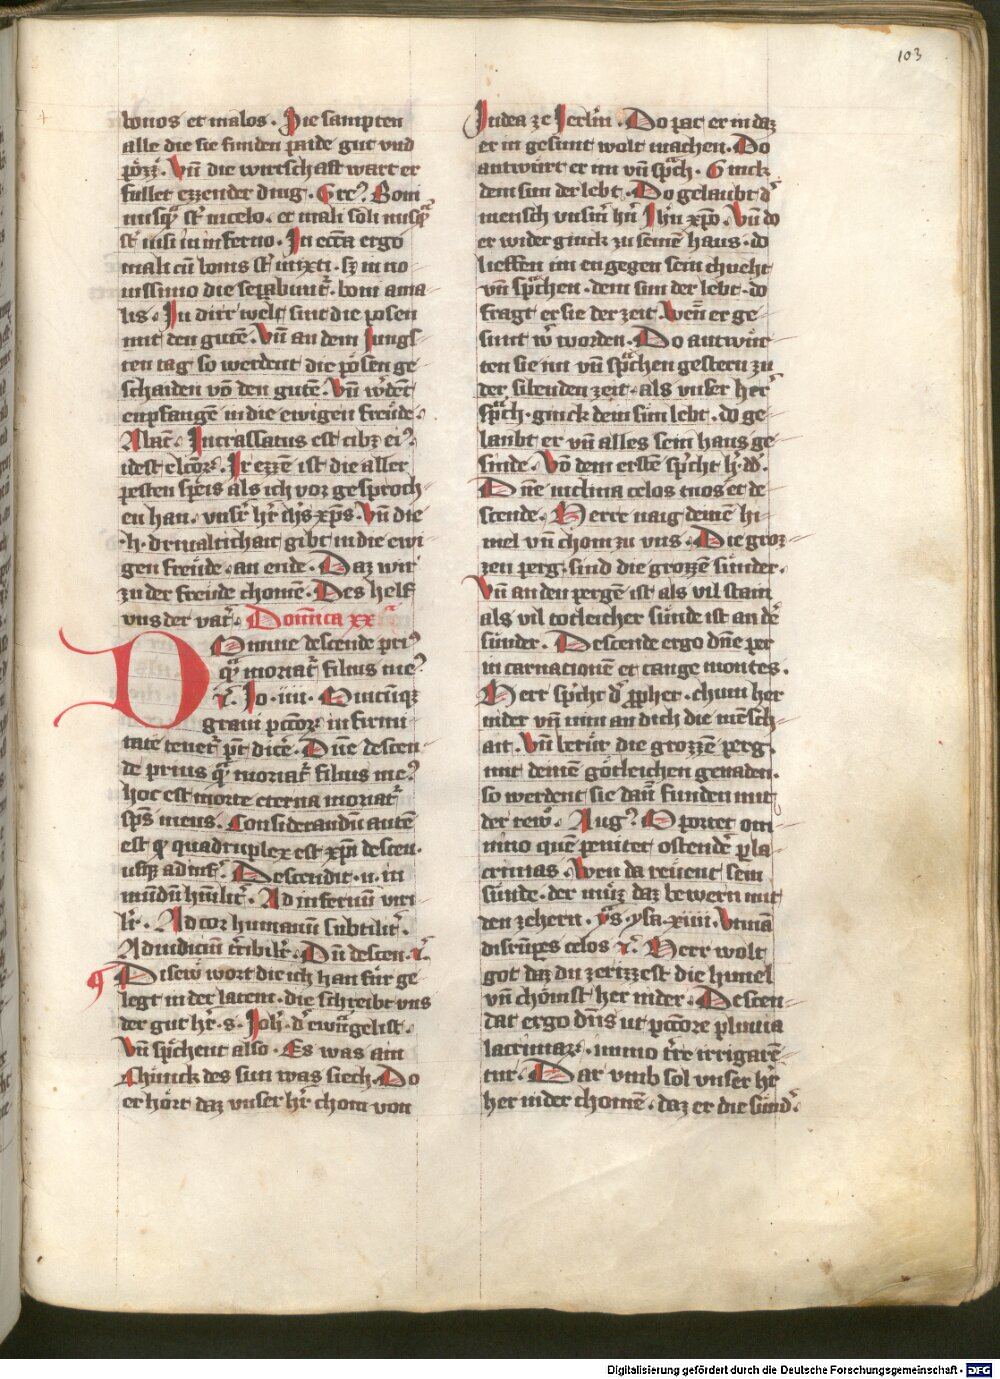 103
bonos et malos. Sie sampten
alle die sie funden paide gut vnd
pözz. Vn̄ die wirtschaft wart er
füllet ezzender ding. Gre⁹. Boni
nusq̄ᵃ st̄ in celo. et mali soli nusq̄ᵃ
st̄ nisi in inferno. In ecc̄a ergo
mali cū bonis st̄ mixti. sꝫ in no
uissimo die sep̄abunt̄. boni a ma
lis. In dirr welt sint die posen
mit den gutē. Vn̄ an dem Jungs
ten tag so werdent die pösen ge
schaiden vō den gutē. Vn̄ w̄dēt
enpfangē in die ewigen freüde.
Alan̄. Incrassatus est cibꝫ ei⁹.
idest elcōꝝ. Ir ezzē ist die aller
pesten speis als ich vor gesproch
en han. vnser h̄r ih̄s xp̄s. Vn̄ die
h. driualtichait gibt in die ewi
gen freüde. an ende. Daz wir
zu der freüde chomē. Des helf
vns der vat̄. Domīica xxᵃ
Domine descende pri⁹
q̄ᵃ moriat̄ filius me⁹
⁊c̄. Jo. iiii. Quicūqꝫ
graui pcc̄oꝝ infirmi
tate tenet̄ pt̄ dicē. Dn̄e descen
de prius q̄ᵃ moriat̄ filius me⁹
hoc est morte eterna moriat̄
sp̄s meus. Considerandū autē
est qꝫ quadruplex est xp̄i descen.
usqꝫ ad inf̄. Descendit .n. in
mūdū hūilit̄. Ad infernū viri
lr̄. Ad cor humanū subtilit̄.
Ad iudiciū t̄ribilr̄. Dn̄ descen. ⁊c̄
Disew wort die ich han für ge
legt in der latein. die schreibt vns
der gut h̄r .s. Joh̄. d̄ ewāgelist.
Vn̄ sp̄chent also. Es was ain
Chünck des sun was siech. Do
er hört daz vnser h̄r chom von
Judea ze Jerl̄m. Do pat er in daz
er in gesunt wolt machen. Do
antwürt er im vn̄ sp̄ch. Ginck
dein sun der lebt. Do gelaubt d̄
mensch vnserm h̄n Jh̄u xp̄o. Vn̄ do
er wider ginck zu seinē haus. do
lieffen im engegen sein chnecht
vn̄ sp̄chen. dein sun der lebt. do
fragt er sie der zeit. Wen̄ er ge
sunt w̄ worden. Do antwür
ten sie im vn̄ sp̄chen gestern zu
der sibenden zeit. als vnser her̄
sp̄ch. ginck dein sun lebt. do ge
laubt er vn̄ alles sein haus ge
sinde. Vō dem erstē sp̄cht h̄. dd̄.
Dn̄e inclina celos tuos et de
scende. Herre naig deinē hi
mel vn̄ chom zu vns. Die groz
zen perg. sind die grozzē sünder.
Vn̄ an den pergē ist als vil stain
als vil totleicher sünde ist an dē
sünder. Descende ergo dn̄e per
incarnacionē et tange montes.
Herr sp̄cht d̄ ꝓpher. chum her
nider vn̄ nim an dich die mēsch
ait. Vn̄ berür die grozzē perg.
mit deinē götleichen genaden.
so werdent sie dan̄ funden mit
der rew. Aug⁹. Oportet om
nino quē penitet ostendē p̱ la
crimas. Wen da reüent sein
sünde. der müz daz bewern mit
den zehern. ys. ysa. xiiii. Vtinā
disrūpes celos ⁊c̄. Herr wolt
got daz du zerizzest die himel
vn̄ chömst her nider. Descen
dat ergo dn̄s ut pcc̄ore pluuia
lacrimaꝝ. immo t̄re irrigarē
tur. Dar vmb sol vnser h̄r
her nider chomē. daz er die sünd̄.
Digitalisierung gefördert durch die Deutsche Forschungsgemeinschaft - DFG